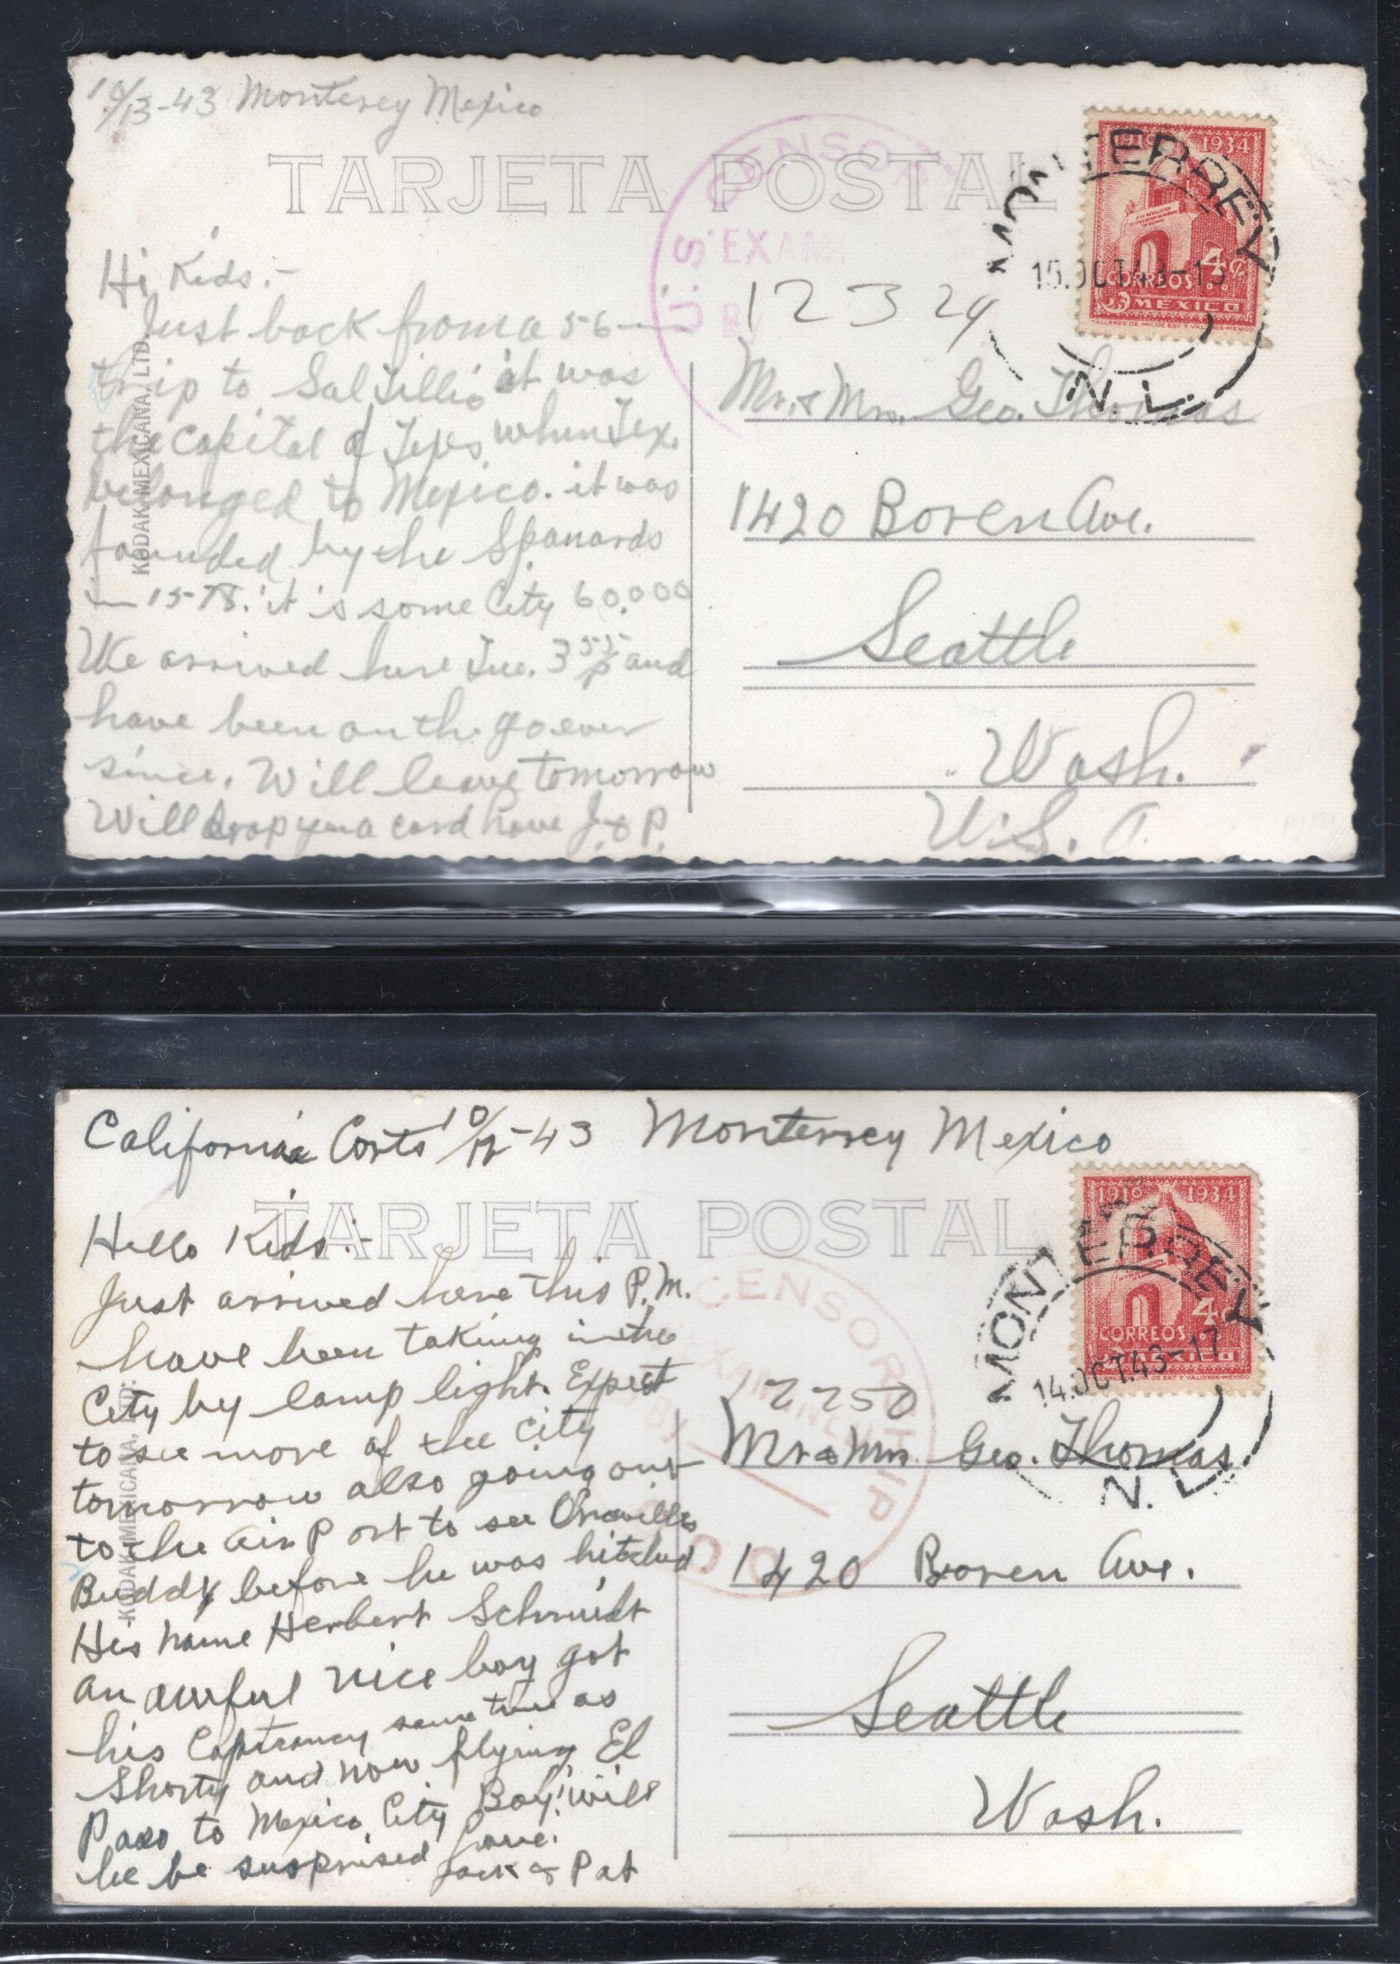 10/13-43 Monterey Mexico
TARJETA POSTAL
U.S. CENSOR
EXAM
BY
12324
1910 1934
4¢
CORREOS
MEXICO
TALLERES DE IMP. DE EST. Y VALORES-MEXICO
MONTERREY
15.OCT.43-15
N.L.
Hi Kids:-
Just back from a 56
trip to Saltillio it was
the Capital of Texs when Tex.
belonged to Mexico. it was
founded by the Spanards
in 1578. it is some City 60,000
We arrived here Tue. 3 55 P and
have been on the go ever
since. Will leave tomorrow
Will drop you a card love J. & P.
KODAK MEXICANA, LTD.
Mr. & Mrs. Geo. Thomas
1420 Boren Ave.
Seattle
Wash.
U.S.A.
California Corts 10/12-43 Monterrey Mexico
TARJETA POSTAL
CENSORSHIP
EXAMINED
BY
12250
1910 1934
4¢
CORREOS
MEXICO
MONTERREY
14.OCT.43-17
N.L.
Hello Kids:-
Just arrived here this P.M.
have been taking in the
City by lamp light. Expect
to see more of the City
tomorrow also going out
to the Air Port to see Orvilles
Buddy before he was hitched
His name Herbert Schmidt
an awful nice boy got
his Captrancy same time as
Shorty and now flying El
Paso to Mexico City Boy! will
he be susprised Love.
Jack & Pat
KODAK MEXICANA, LTD.
Mr & Mrs Geo. Thomas
1420 Boren Ave.
Seattle
Wash.